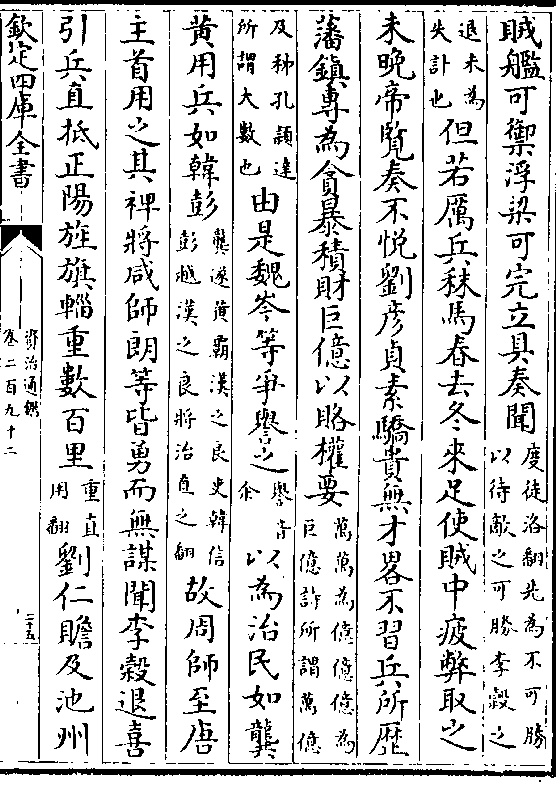 賊艦可禦浮梁可完立具奏聞度徒洛翻先為不可勝以待敵之可勝李糓之
退未為失計也但若厲兵秣馬春去冬來足使賊中疲弊取之
未晚帝覧奏不悦劉彦貞素驕貴無才畧不習兵所歴
藩鎮專為貪暴積財巨億以賂權要萬萬為億億億為巨億許所謂萬億
及秭孔頴達所謂大數也由是魏岑等爭譽之譽音余以為治民如龔
黄用兵如韓彭龔遂黄霸漢之良吏韓信彭越漢之良將治直之翻故周師至唐
主首用之其裨將咸師朗等皆勇而無謀聞李穀退喜
引兵直抵正陽旌旗輜重數百里重直用翻劉仁贍及池州
欽定四庫全書
資治通鑑
卷二百九十二
二十五